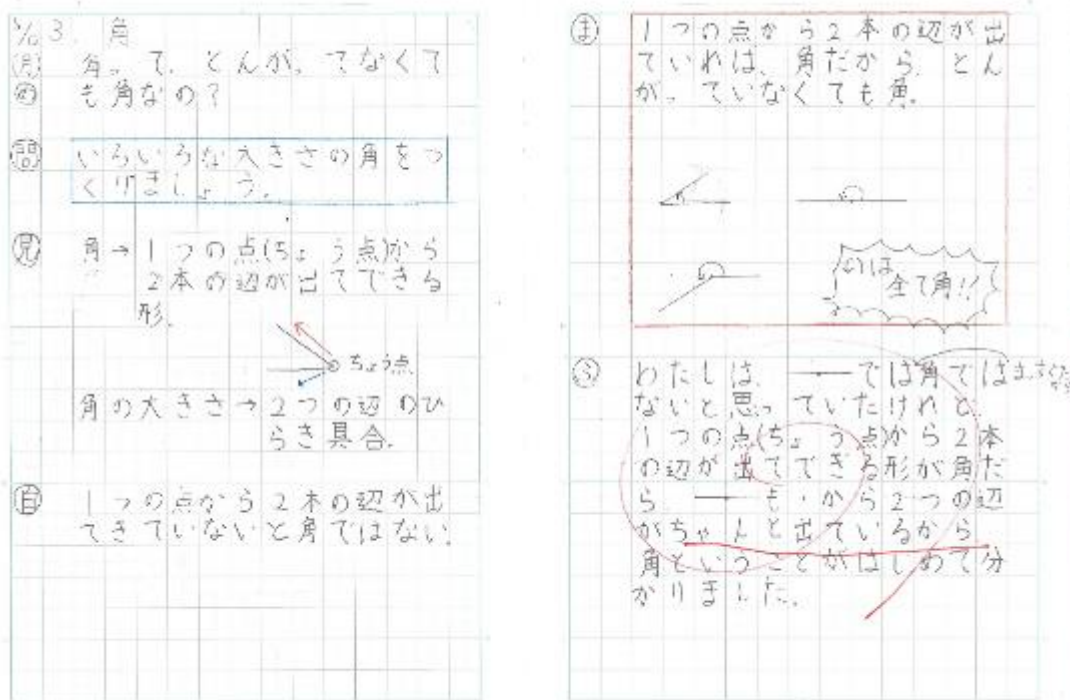 3. 角
(月)
角って、とんがってなくて
め
も角なの？
問
いろいろな大きさの角をつ
くりましょう。
見
角→1つの点(ちょう点)から
2本の辺が出てできる
形。
ちょう点
角の大きさ→2つの辺のひ
らき具合。
自
1つの点から2本の辺が出
てきていないと角ではない。
ま
1つの点から2本の辺が出
ていれば、角だから、とん
がっていなくても角。
全て角!!
ふ
わたしは、では角では
ないと思っていたけれど、
1つの点(ちょう点)から2本
の辺が出てできる形が角だ
から2つの辺
がちゃんと出ているから
角ということがはじめて分
かりました。